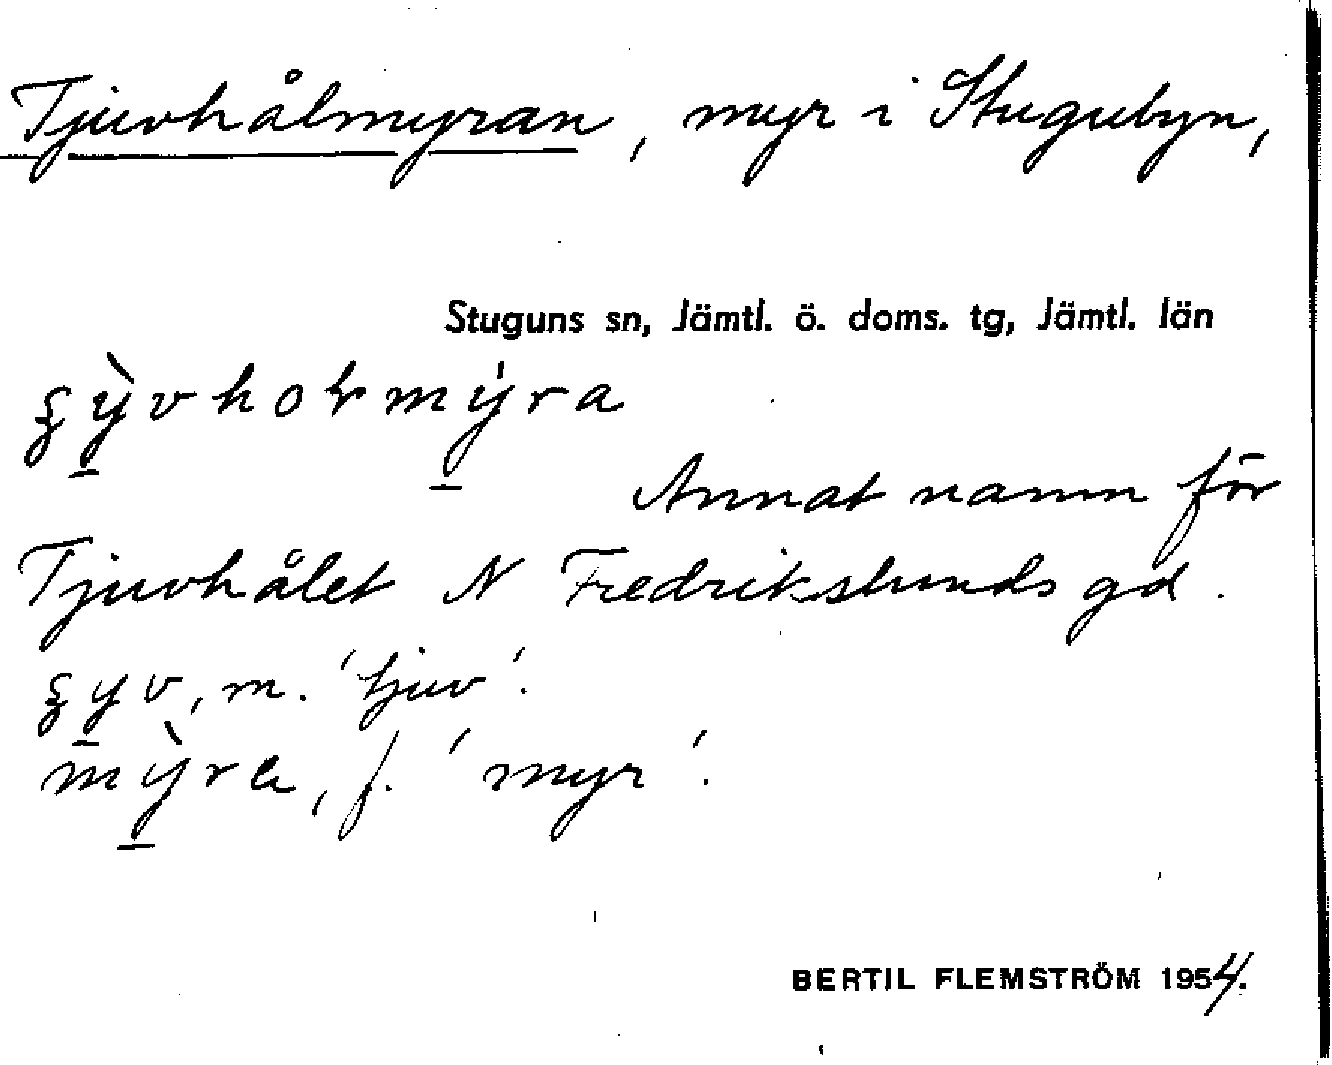 Tjuvhålmyran, myr i Stugubyn,
Stuguns sn, Jämtl. ö. doms. tg, Jämtl. län
Annat namn för
Tjuvhålet N Fredrikslunds gd.
m. 'tjuv'.
mỳra, f. 'myr'.
BERTIL FLEMSTRÖM 1954.